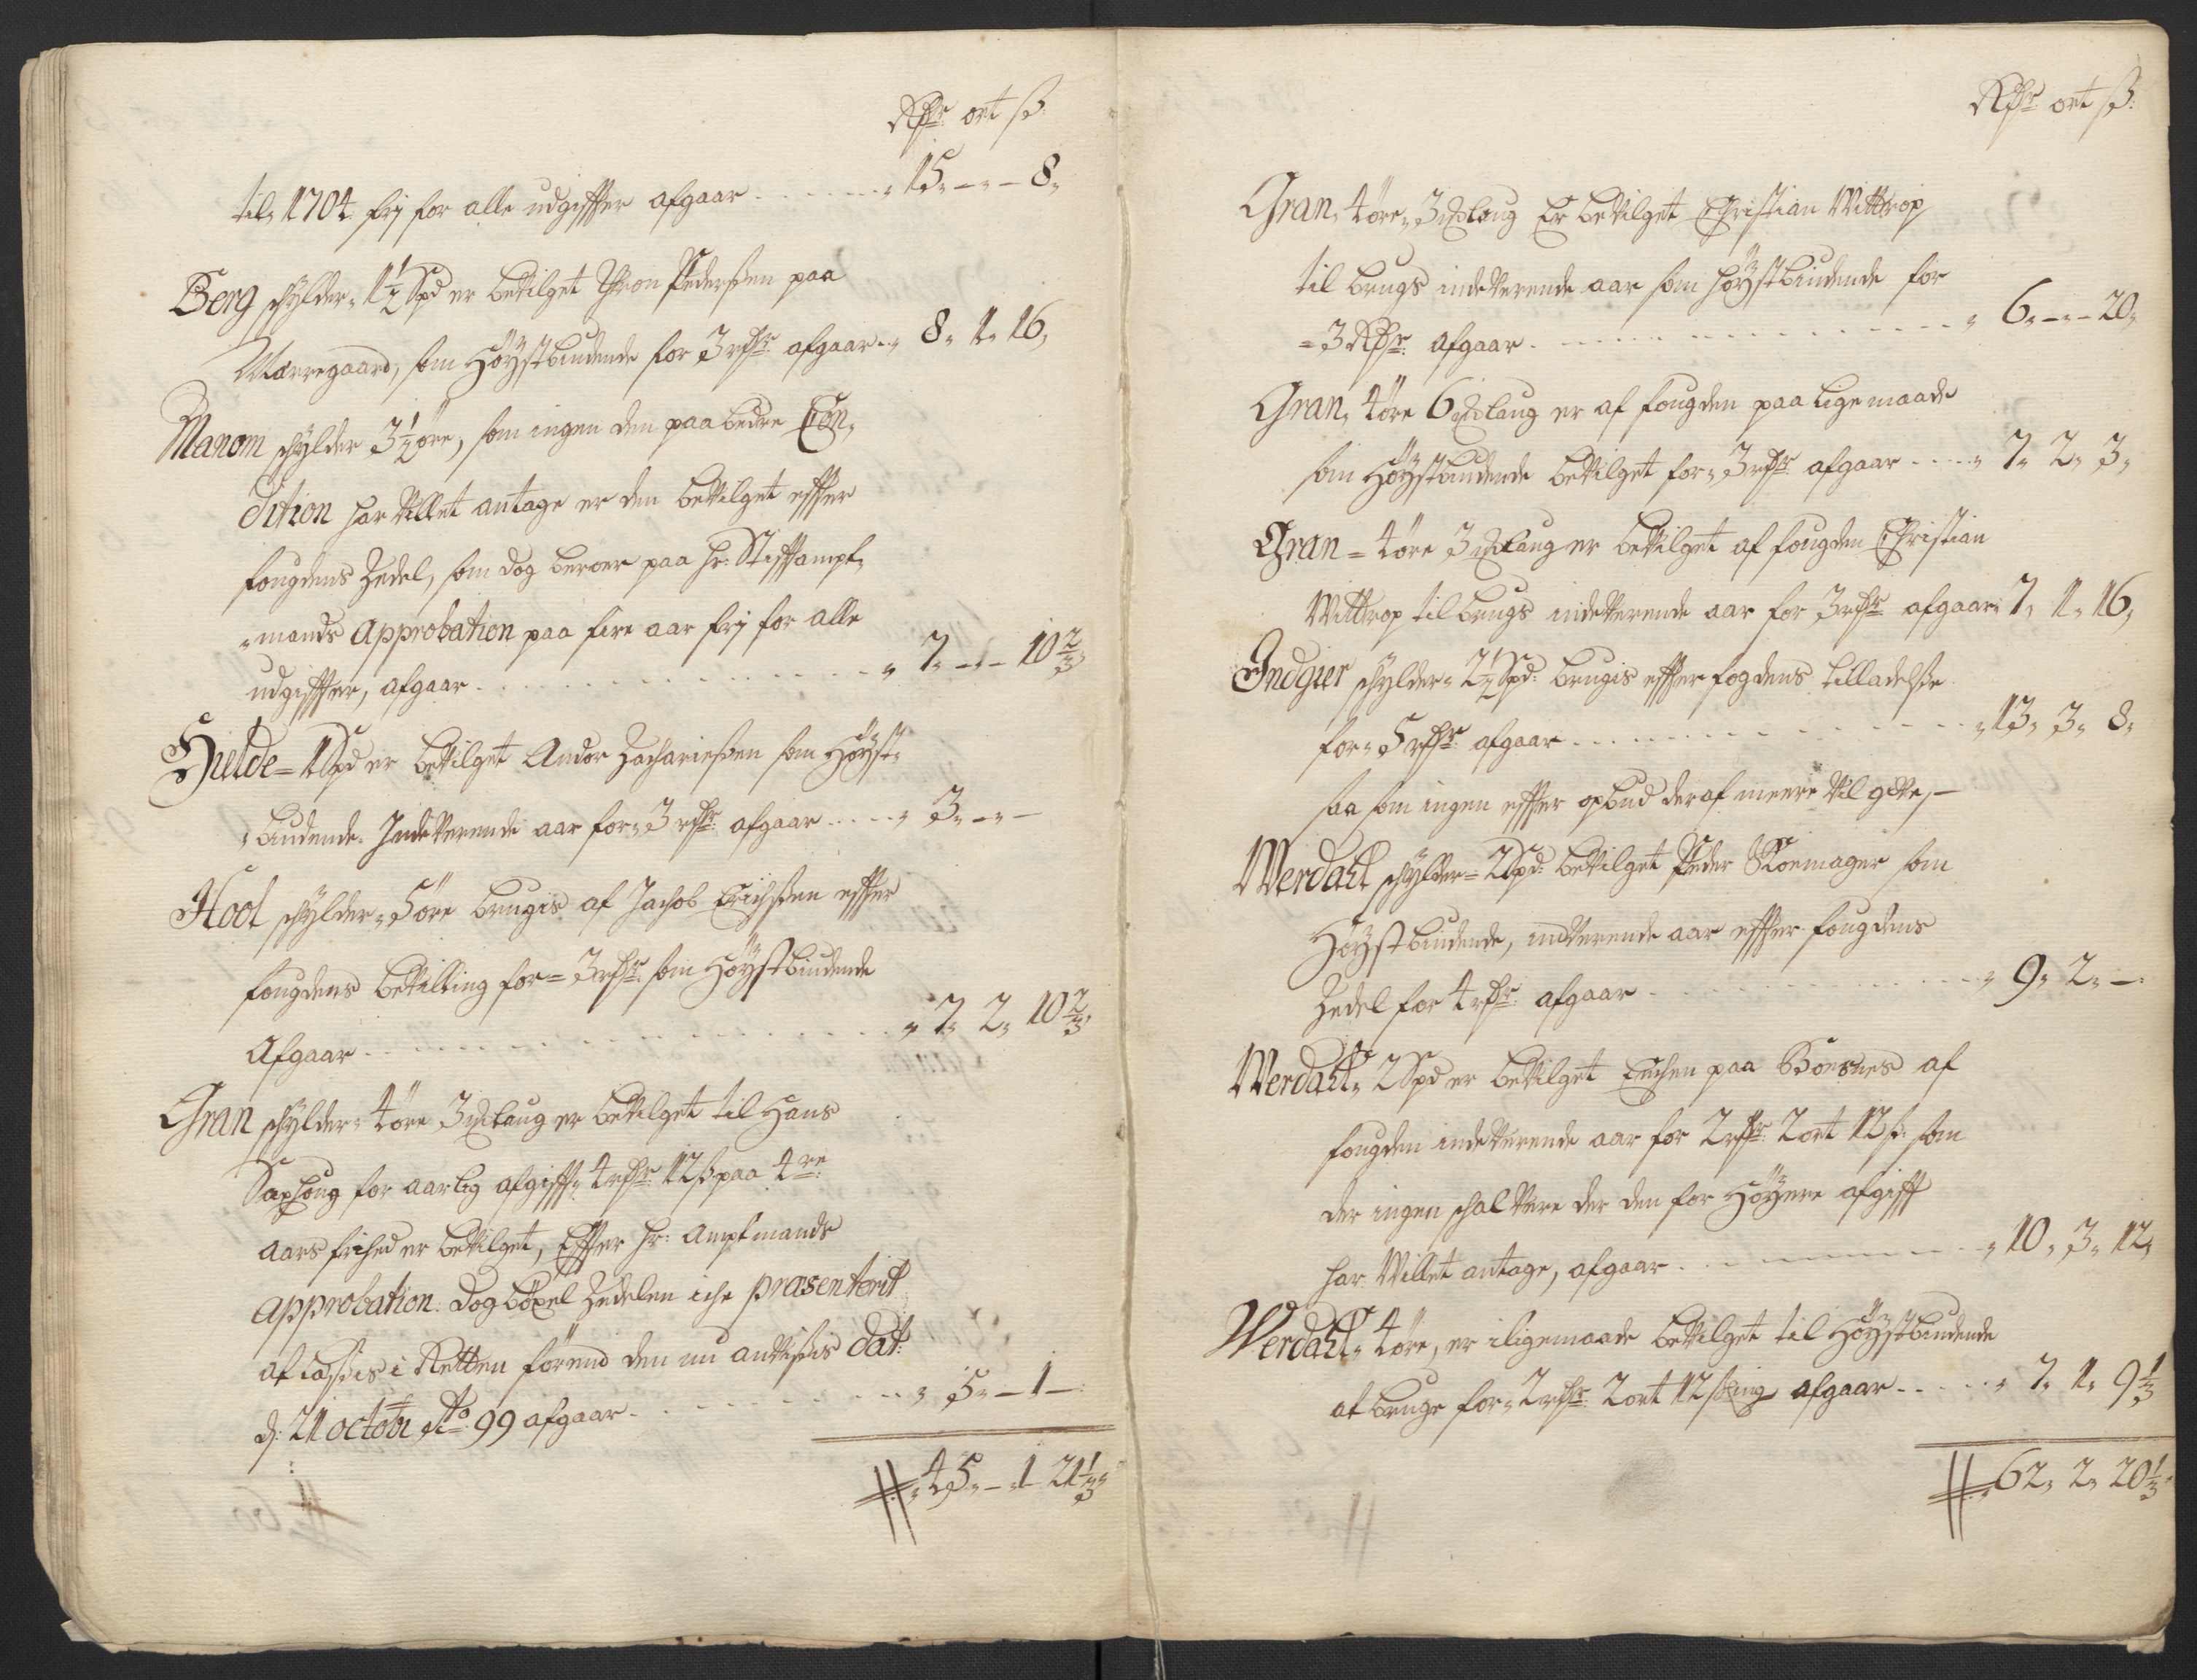 Rdr ort ß:
til 1704 frj for alle udgiffter afgaar - - - - " 15 " - " - 8 "
Berg schylder " 1½ Spd er beVilget Thron Pederßen paa
Marregaard, som Höystbiudende for 3 rdr: afgaar - " 8 " 1 " 16 "
Manom schylder 3½ öre, som ingen den paa bedre Con,
dition har Villet antage er den beVilget effter
fougdens Zedel, som dog beroer paa hr: Stifftampt,
"mands Approbation paa fire aar frj for alle
udgiffter, afgaar - - - - " 7 " - " - 10⅔ "
Hielde = 1 Spd er beVilget Andor Zacharießen som Höyst "
" biudende. IndeVerende aar for " 3 rdr: afgaar - - - " 3 " - " -
Hool schylder " 5 öre brugis af Jachob Erichßen effter
fougdens beVilling for = 3 rdr: som Höystbiudende
Afgaar - - - - " 7 " 2 " 10⅔ "
Gran schylder " 4 öre 3 mklaug er beVilget til Hans
Saxhoug for aarlig afgifft " 4 rdr 12 ß paa 4re:
aars frihed er beVilget, Effter hr: Amptmands
Approbation. dog böxel Zedelen iche præsenterit
at læßis i Retten förend den nu anVißis dat:
d: 21 octobr Ao 99 afgaar - - - - " 5 " - 1 -
" 45 " - 1 21⅓ "
Rdr ort ß:
Gran " 4 öre " 3 mklaug Er beVilget Christian Wittrop
til brugs indeVerende aar som höystbiudende for
= 3 Rdr: afgaar - - - - " 6 " - " - 20 "
Gran " 4 öre 6 mklaug er af fougden paa lige maade
som Höystbiudende beVilget for " 3 rdr afgaar - - - " 7 " 2 " 3 "
Gran = 4 öre 3 mklaug er beVilget af fougden Christian
Wittrop til brugs indeVerende aar for 3 rdr afgaar 7 " 1 " 16 "
Indgier schylder " 2½ Spd: brugis effter fogdens tilladelße
for " 5 rdr: afgaar - - - - " 13 " 3 " 8 "
saa som ingen effter opbud deraf meere Vil giVe, -
Werdahl schylder = 2 Spd: beVilget Peder Skoemager som
Höystbiudende, indVerende aar effter fougdens
Zedel for 4 rdr: afgaar - - - - " 9 " 2 " -
Werdahl " 2 Spd er beVilget Enchen paa Borsnes af
fougden indeVerende aar for 2 rdr: 2 ort 12 ß: som
der ingen schal Vere der den for Höyere afgifft
har Villet antage, afgaar - - - - " 10 " 3 " 12 "
Werdahl " 4 öre, er iligemaade beVilget til Höystbiudende
at bruge for " 2 rdr: 2 ort 12 skling afgaar - - - " 7 " 1 " 9⅓
" 62 " 2 " 20⅓ "